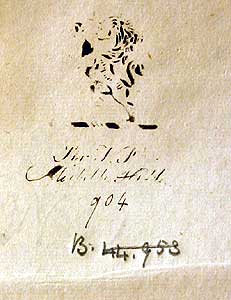 Middle Hill
904
B. 44.953